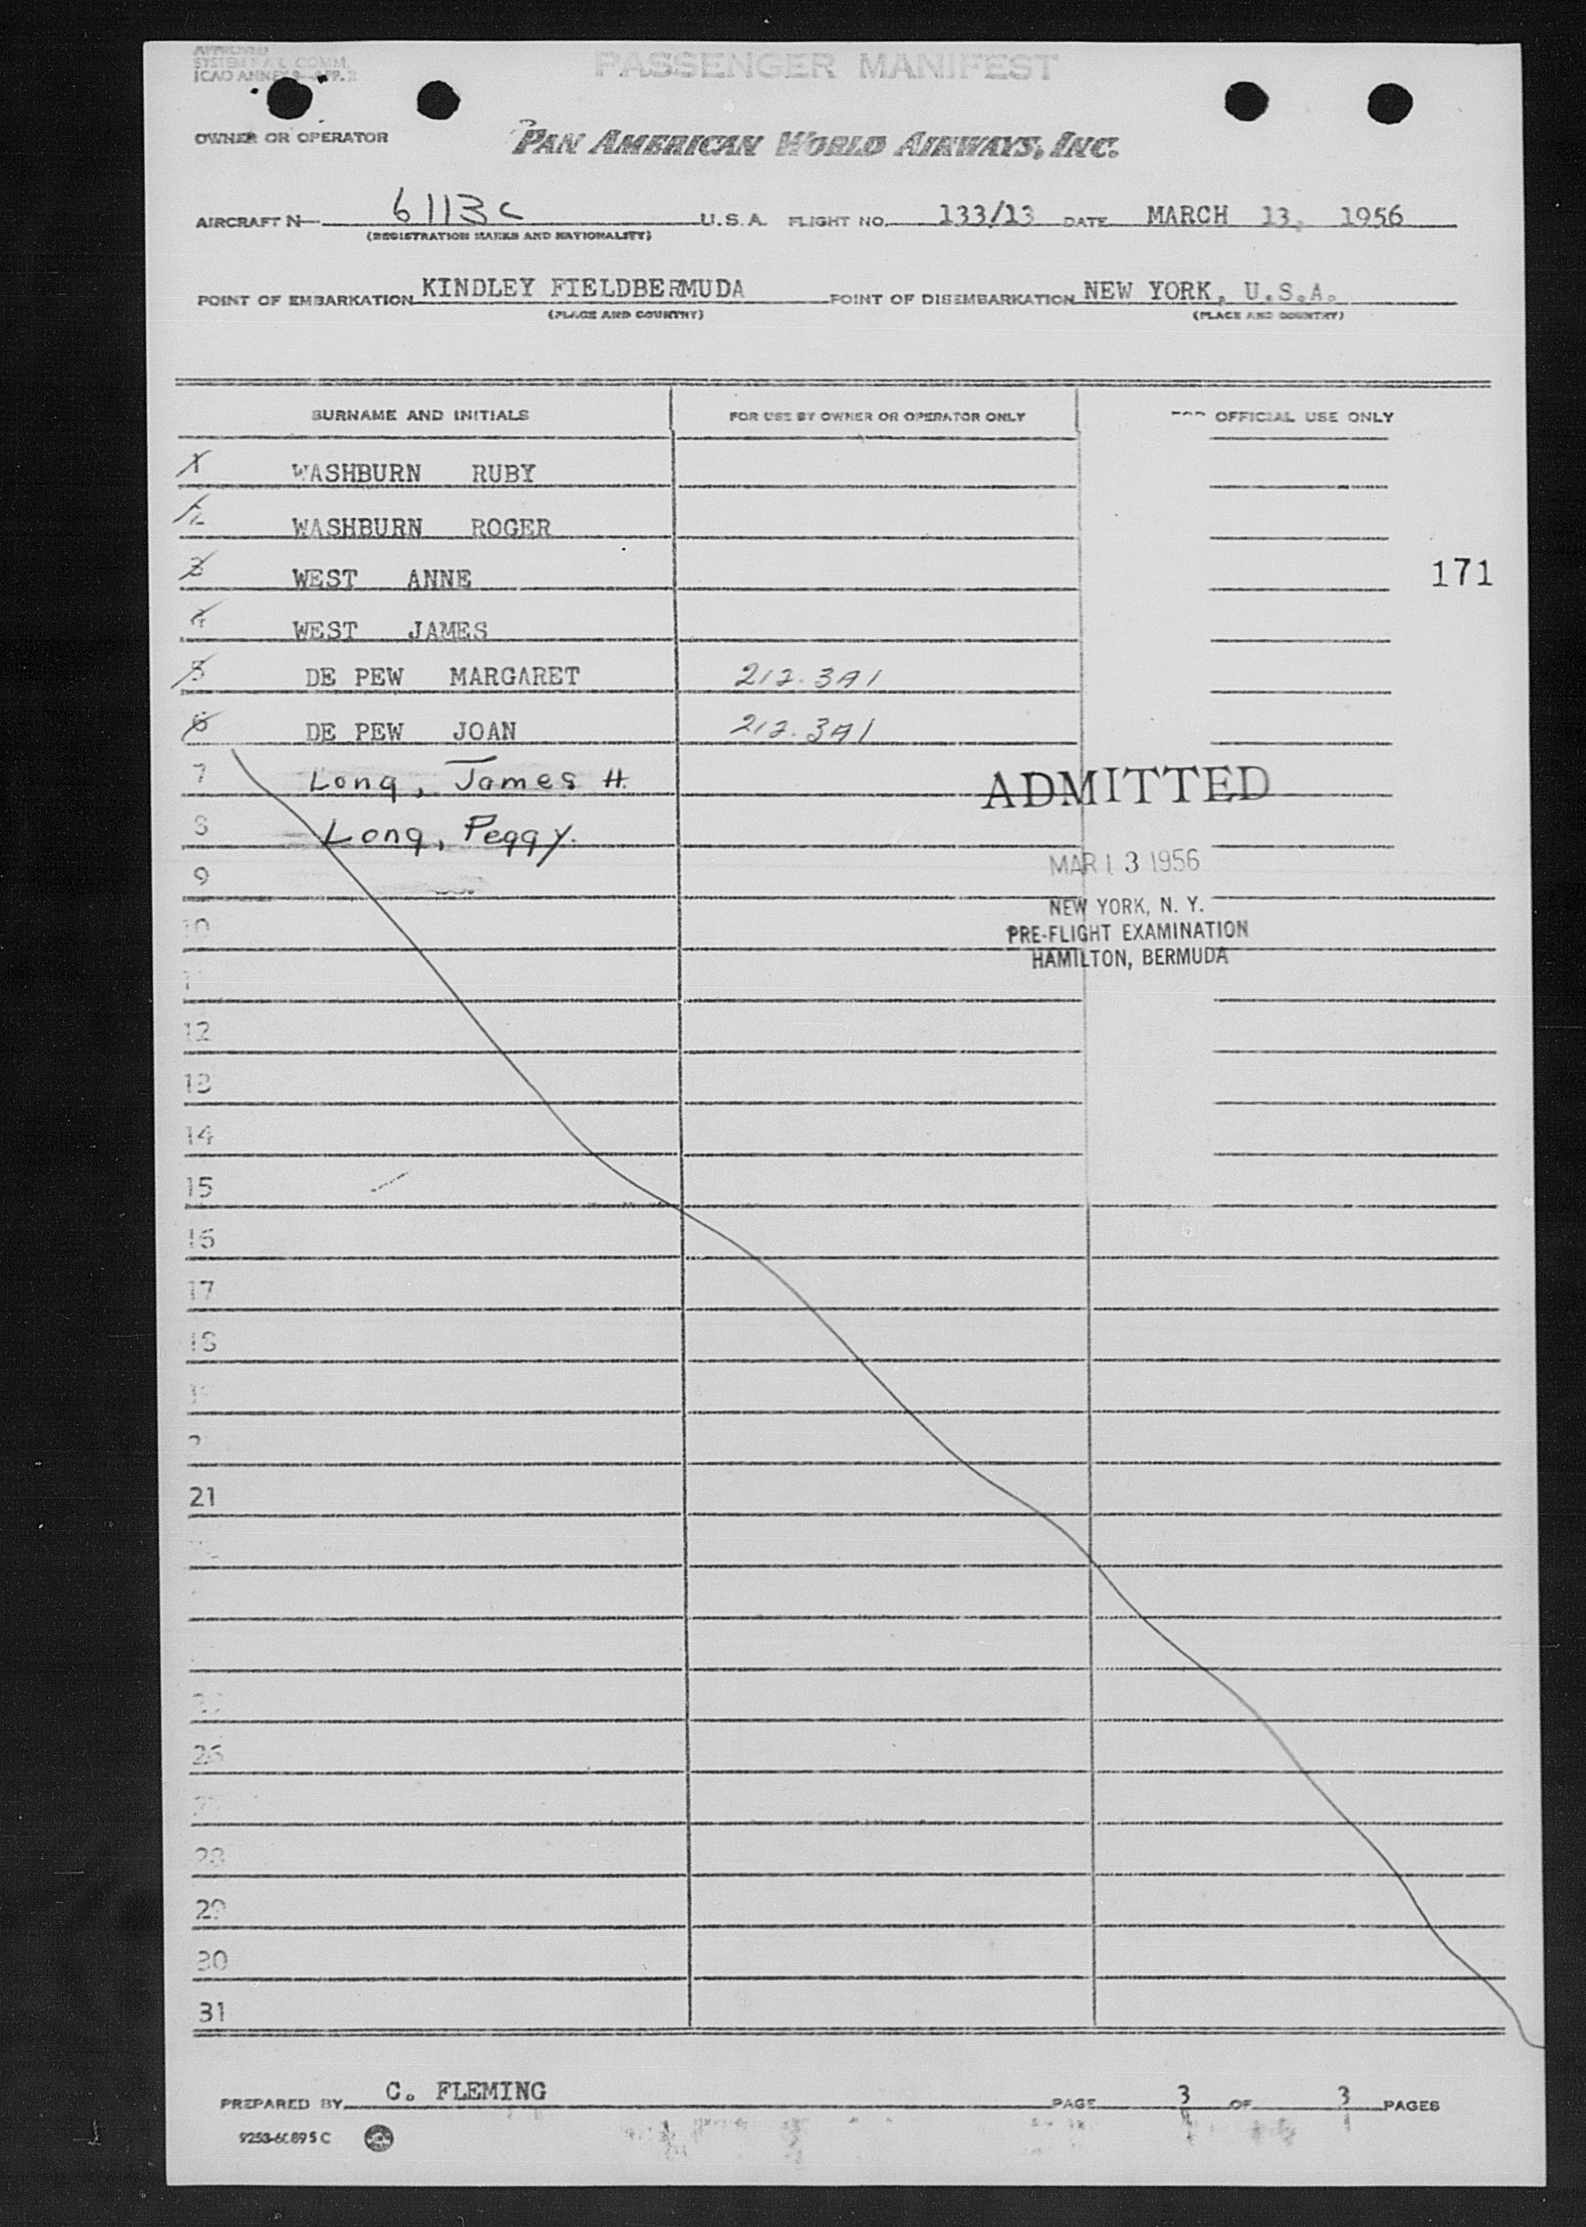 APPROVED
SYSTEM F.A.L. COMM.
ICAO ANNEX 9—APP. 2
PASSENGER MANIFEST
OWNER OR OPERATOR PAN AMERICAN WORLD AIRWAYS, INC.
AIRCRAFT N— 6113C U.S.A. FLIGHT NO. 133/13 DATE MARCH 13, 1956
(REGISTRATION MARKS AND NATIONALITY)
POINT OF EMBARKATION KINDLEY FIELDBERMUDA POINT OF DISEMBARKATION NEW YORK, U.S.A.
(PLACE AND COUNTRY) (PLACE AND COUNTRY)
SURNAME AND INITIALS FOR USE BY OWNER OR OPERATOR ONLY FOR OFFICIAL USE ONLY
1 WASHBURN RUBY
2 WASHBURN ROGER
3 WEST ANNE 171
4 WEST JAMES
5 DE PEW MARGARET 212.3A1
6 DE PEW JOAN 212.3A1
7 Long, James H. ADMITTED
8 Long, Peggy.
MAR 13 1956
9
NEW YORK, N. Y.
10 PRE-FLIGHT EXAMINATION
HAMILTON, BERMUDA
11
12
13
14
15
16
17
18
21
26
28
29
30
31
PREPARED BY C. FLEMING PAGE 3 OF 3 PAGES